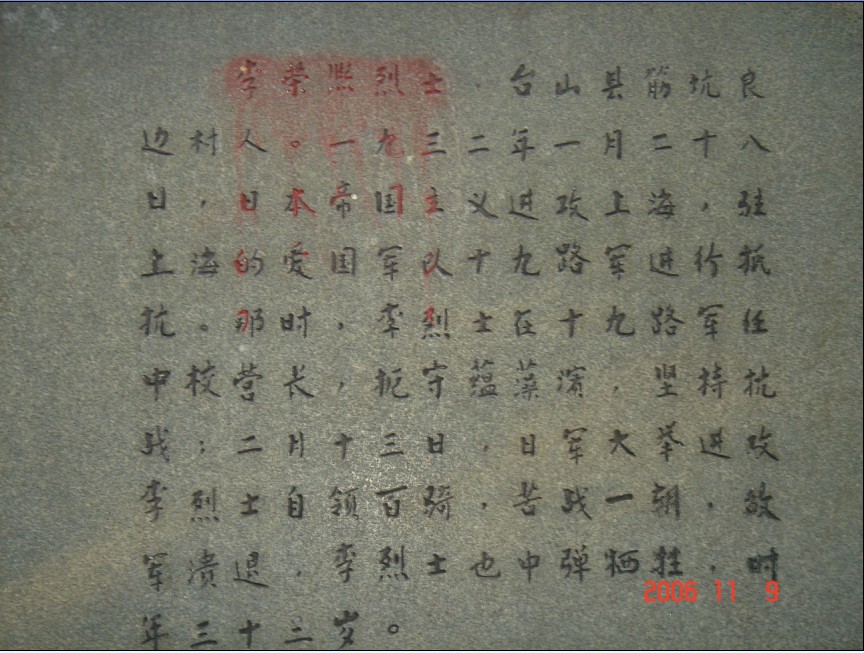 李荣熙烈士，台山县筋坑良
边村人。一九三二年一月二十八
日，日本帝国主义进攻上海，驻
上海的爱国军队十九路军进行抵
抗。那时，李烈士在十九路军任
中校营长，扼守蕴藻滨，坚持抗
战；二月十三日，日军大举进攻
李烈士自领百骑，苦战一朝，敌
军溃退，李烈士也中弹牺牲，时
年三十三岁。
2006 11 9